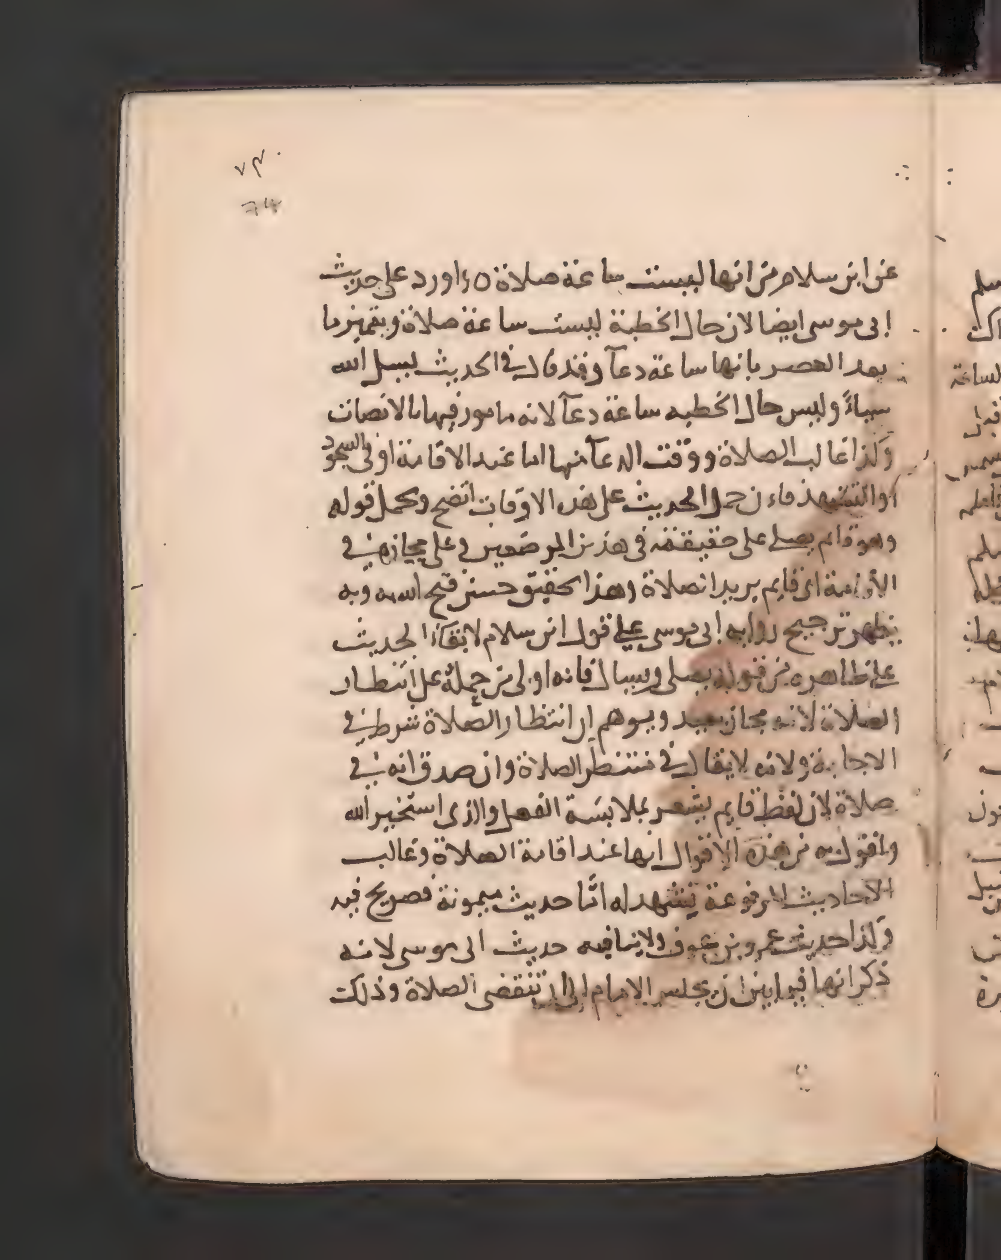 عن ابن سلام من انها ليست ساعة صلاة واورد على حديث
ابى موسى ايضا لان حال الخطبة ليست ساعة صلاة ويتميز ما
بعد العصر بانها ساعة دعآ وقد قال في الحديث ليسل الله
سياءً وليس حال الخطبه ساعة دعآ لانه مامور فيها بالانصات
وكذا غالب الصلاة ووقت الدعآ منها اما عند الاقامة او في السجود
او التشهد فان حمل الحديث على هذه الاوقات اتضح ويحمل قوله
وهو قايم يصلى على حقيقته في هذين الموضعين وعلى مجازه في
الاقامة اى قايم يريد الصلاة وهذا تحقيق حسن فتح الله به وبه
يظهر ترجيح رواية ابى موسى على قول ابن سلام لابقآ الحديث
على ظاهره من قوله يصلى ويسال فانه اولى من حمله على انتظار
الصلاة لانه مجاز بعيد ويوهم ان انتظار الصلاة شرط في
الاجابة ولانه لا يقال في منتظر الصلاة وان صدق انه في
صلاة لان لفظ قايم يشعر بملابسة الفعل والذى استخير الله
واقول به من هذه الاقوال انها عند اقامة الصلاة وغالب
الاحاديث المرفوعة تشهد له امّا حديث ميمونة فصريح فيه
وكذا حديث عمرو بن عوف ولا ينافيه حديث ابى موسى لانه
ذكر انها فيما بين ان يجلس الامام الى ان تنقضى الصلاة وذلك